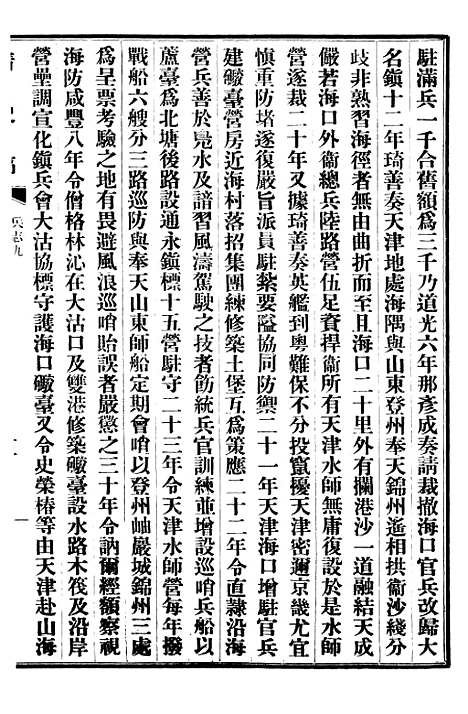 駐滿兵一千合舊額爲三千乃道光六年那彥成奏請裁撤海口官兵改歸大
名鎭十二年琦善奏天津地處海隅與山東登州奉天錦州遙相拱衞沙綫分
歧非熟習海徑者無由曲折而至且海口二十里外有攔港沙一道融結天成
儼若海口外衞總兵陸路營伍足資捍衞所有天津水師無庸復設於是水師
營遂裁二十年又據琦善奏英艦到粵難保不分投竄擾天津密邇京畿尤宜
愼重防堵遂復嚴旨派員駐紮要隘協同防禦二十一年天津海口增駐官兵
建礮臺營房近海村落招集團練修築土堡互爲策應二十二年令直隸沿海
營兵善於鳧水及諳習風濤駕駛之技者飭統兵官訓練並增設巡哨兵船以
蘆臺爲北塘後路設通永鎭標十五營駐守二十三年令天津水師營每年撥
戰船六艘分三路巡防與奉天山東師船定期會哨以登州岫巖城錦州三處
爲呈票考驗之地有畏避風浪巡哨貽誤者嚴懲之三十年令訥爾經額察視
海防咸豐八年令僧格林沁在大沽口及雙港修築礮臺設水路木筏及沿岸
營壘調宣化鎭兵會大沽協標守護海口礮臺又令史榮椿等由天津赴山海
兵志九